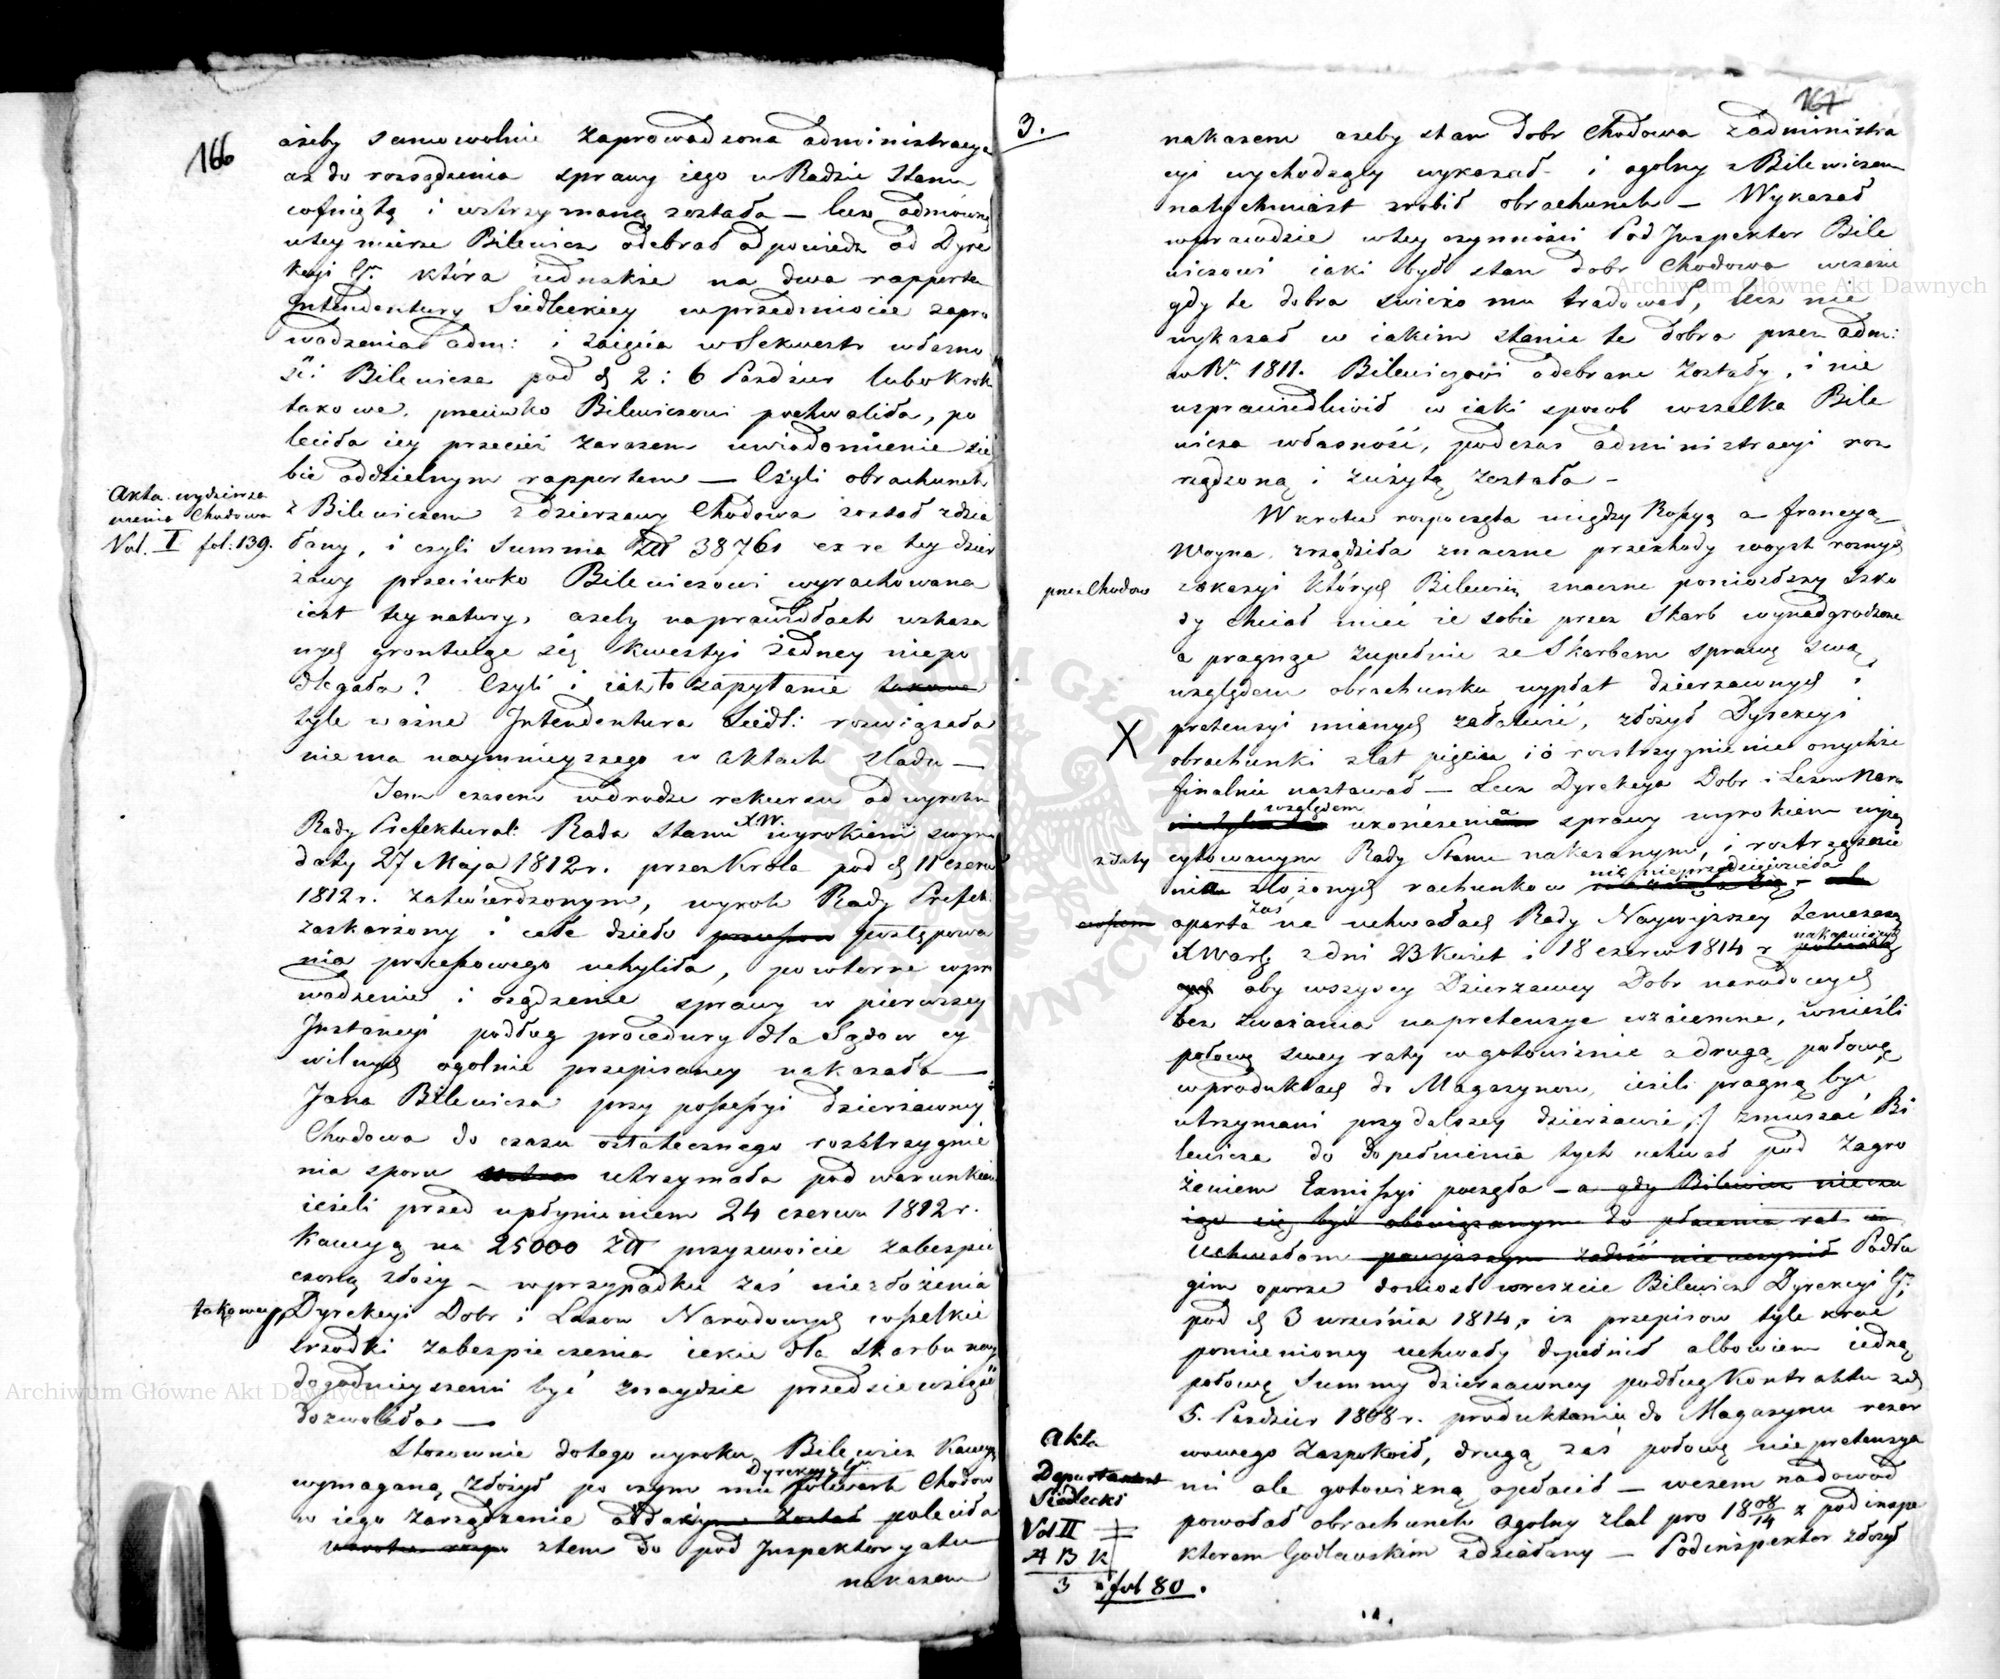 166
ażeby samowolnie zaprowadzona administracya
aż do rozsądzenia sprawy iego w Radzie Stanu
cofniętą i wstrzymaną została — lecz odmowną
w tey mierze Bilewicz odebrał odpowiedź od Dyre
kcyi która iednakże na dwa rapporta
Intendentury Siedleckiey w przedmiocie zapro
wadzenia adm: i zaięcia w Sekwestr własno
ści Bilewicza pod d 2 i 6 Paźdźier lubo krok
takowe przeciwko Bilewiczowi pochwaliła, po
leciła iey przecież zarazem uwiadomienie sie
bie oddzielnym rapportem — Czyli obrachunek
Akta wydzierza
wienia Chodowa
Vol. I fol: 139.
z Bilewiczem z dzierzawy Chodowa został zdzia
łany, i czyli Summa Zł 38761 ex re tey dzier
żawy przeciwko Bilewiczowi wyrachowana
iest tey natury, ażeby na prawidłach wskaza
nych gruntuiąc się kwestyi żadney niepo
dlegała? Czyli i iak to zapytanie takowe
tyle ważne Intendentura Siedl: rozwiązała
niema naymnieyszego w aktach śladu —
Tem czasem w drodze rekursu od wyroku
Rady Prefektural: Rada Stanu X.W. wyrokiem swym
daty 27 Maja 1812 r. przez Krola pod d 11 czerw
1812 r. zatwierdzonym, wyrok Rady Prefek:
zaskarżony i całe dzieło postępowa
nia processowego uchyliła, powtorne wpro
wadzenie i osądzenie sprawy w pierwszey
Instancyi podług procedury dla Sądow cy
wilnych ogolnie przepisaney nakazała —
Jana Bilewicza przy possessyi dzierżawney
Chodowa do czasu ostatecznego rozstrzygnie
nia sporu utrzymała pod warunkiem
ieżeli przed upłynieniem 24 czerwca 1812 r.
Kaucyą na 25000 Zł przyzwoicie zabezpie
czoną złoży — w przypadku zaś niezłożenia
takowey Dyrekcyi Dobr i Lasow Narodowych wszelkie
srzodki zabezpieczenia iakie dla Skarbu nay
dogodnieyszemi być znaydzie przedsiewziąść
dozwoliła —
Stosownie do tego wyroku Bilewicz Kaucyą
wymaganą złożył po czym mu Dyrekcya folwark Chodow
w iego zarządzenie został poleciła
ztem do pod Inspektoryatu
nakazem
167
3.
nakazem ażeby stan dobr Chodowa z administra
cyi wychodzący wykazał i ogolny z Bilewiczem
natychmiast zrobił obrachunek — Wykazał
wprawdzie w tey czynności Pod Inspektor Bile
wiczowi iaki był stan dobr Chodowa wczasie
gdy te dobra świeżo mu tradował, lecz nie
wykazał w iakim stanie te dobra przez adm:
w R. 1811. Bilewiczowi odebrane zostały, i nie
usprawiedliwił w iaki sposob wszelka Bile
wicza własność, podczas administracyi roz
rządzoną i zużytą została —
Wkrotce rozpoczęta między Rossyą a Francyą
Woyna zrządziła znaczne przechody woysk rożnych
przez Chodow
z okazyi których Bilewicz znaczne poniozłszy szko
dy chciał mieć ie sobie przez Skarb wynadgrodzone
a pragnąc zupełnie ze Skarbem sprawę swą
względem obrachunku wypłat dzierzawnych i
X
pretensyi mianych załatwić, złożył Dyrekcyi
obrachunki z lat pięciu i o rozstrzygnienie onychże
finalnie nastawał — Lecz Dyrekcya Dobr i Lasow Naro
względem wzniesienia sprawy wyrokiem wyżej
z daty
cytowanym Rady Stanu nakazanym, i roztrząśnie
nia złożonych rachunkow nic nieprzedsięwzięła
oparta zaś na uchwałach Rady Naywyższey Tymczasowey
X Warsz z dni 23 Kwiet i 18 czerw 1814 r nakazuiących
aby wszyscy Dzierzawcy Dobr narodowych
bez zważania na pretensye wzaiemne, wnieśli
połowę swey raty w gotowiznie a drugą połowę
w produktach do Magazynow, ieżeli pragną być
utrzymani przy dalszey dzierżawie, zmuszać Bi
lewicza do dopełnienia tych uchwał pod zagro
żeniem Exmissyi poczęła — a gdy Bilewicz nieczu
iąc się być obowiązanym do płacenia rat
uchwałom powyższym zadość nie uczynił Podłu
gim oporze doniosł wreszcie Bilewicz Dyrekcyi
pod d 3 września 1814, iż przepisow tyle kroć
pomienioney uchwały dopełnił albowiem iedną
połowę Summy dzierzawney podług Kontraktu z d
5. Paździer 1808 r. produktami do Magazynu rezer
Akta
Departament
Siedlecki
Vol. II
A B K
3 fol 80.
wowego zaspokoił, drugą zaś połowę nie pretensya
mi ale gotowizną opłacił — wczem na dowod
powołał obrachunek ogolny z lat pro 1808/14 z podinspe
ktorem Godlewskim zdziałany — Podinspektor złożył
Archiwum Główne Akt Dawnych
Archiwum Główne Akt Dawnych